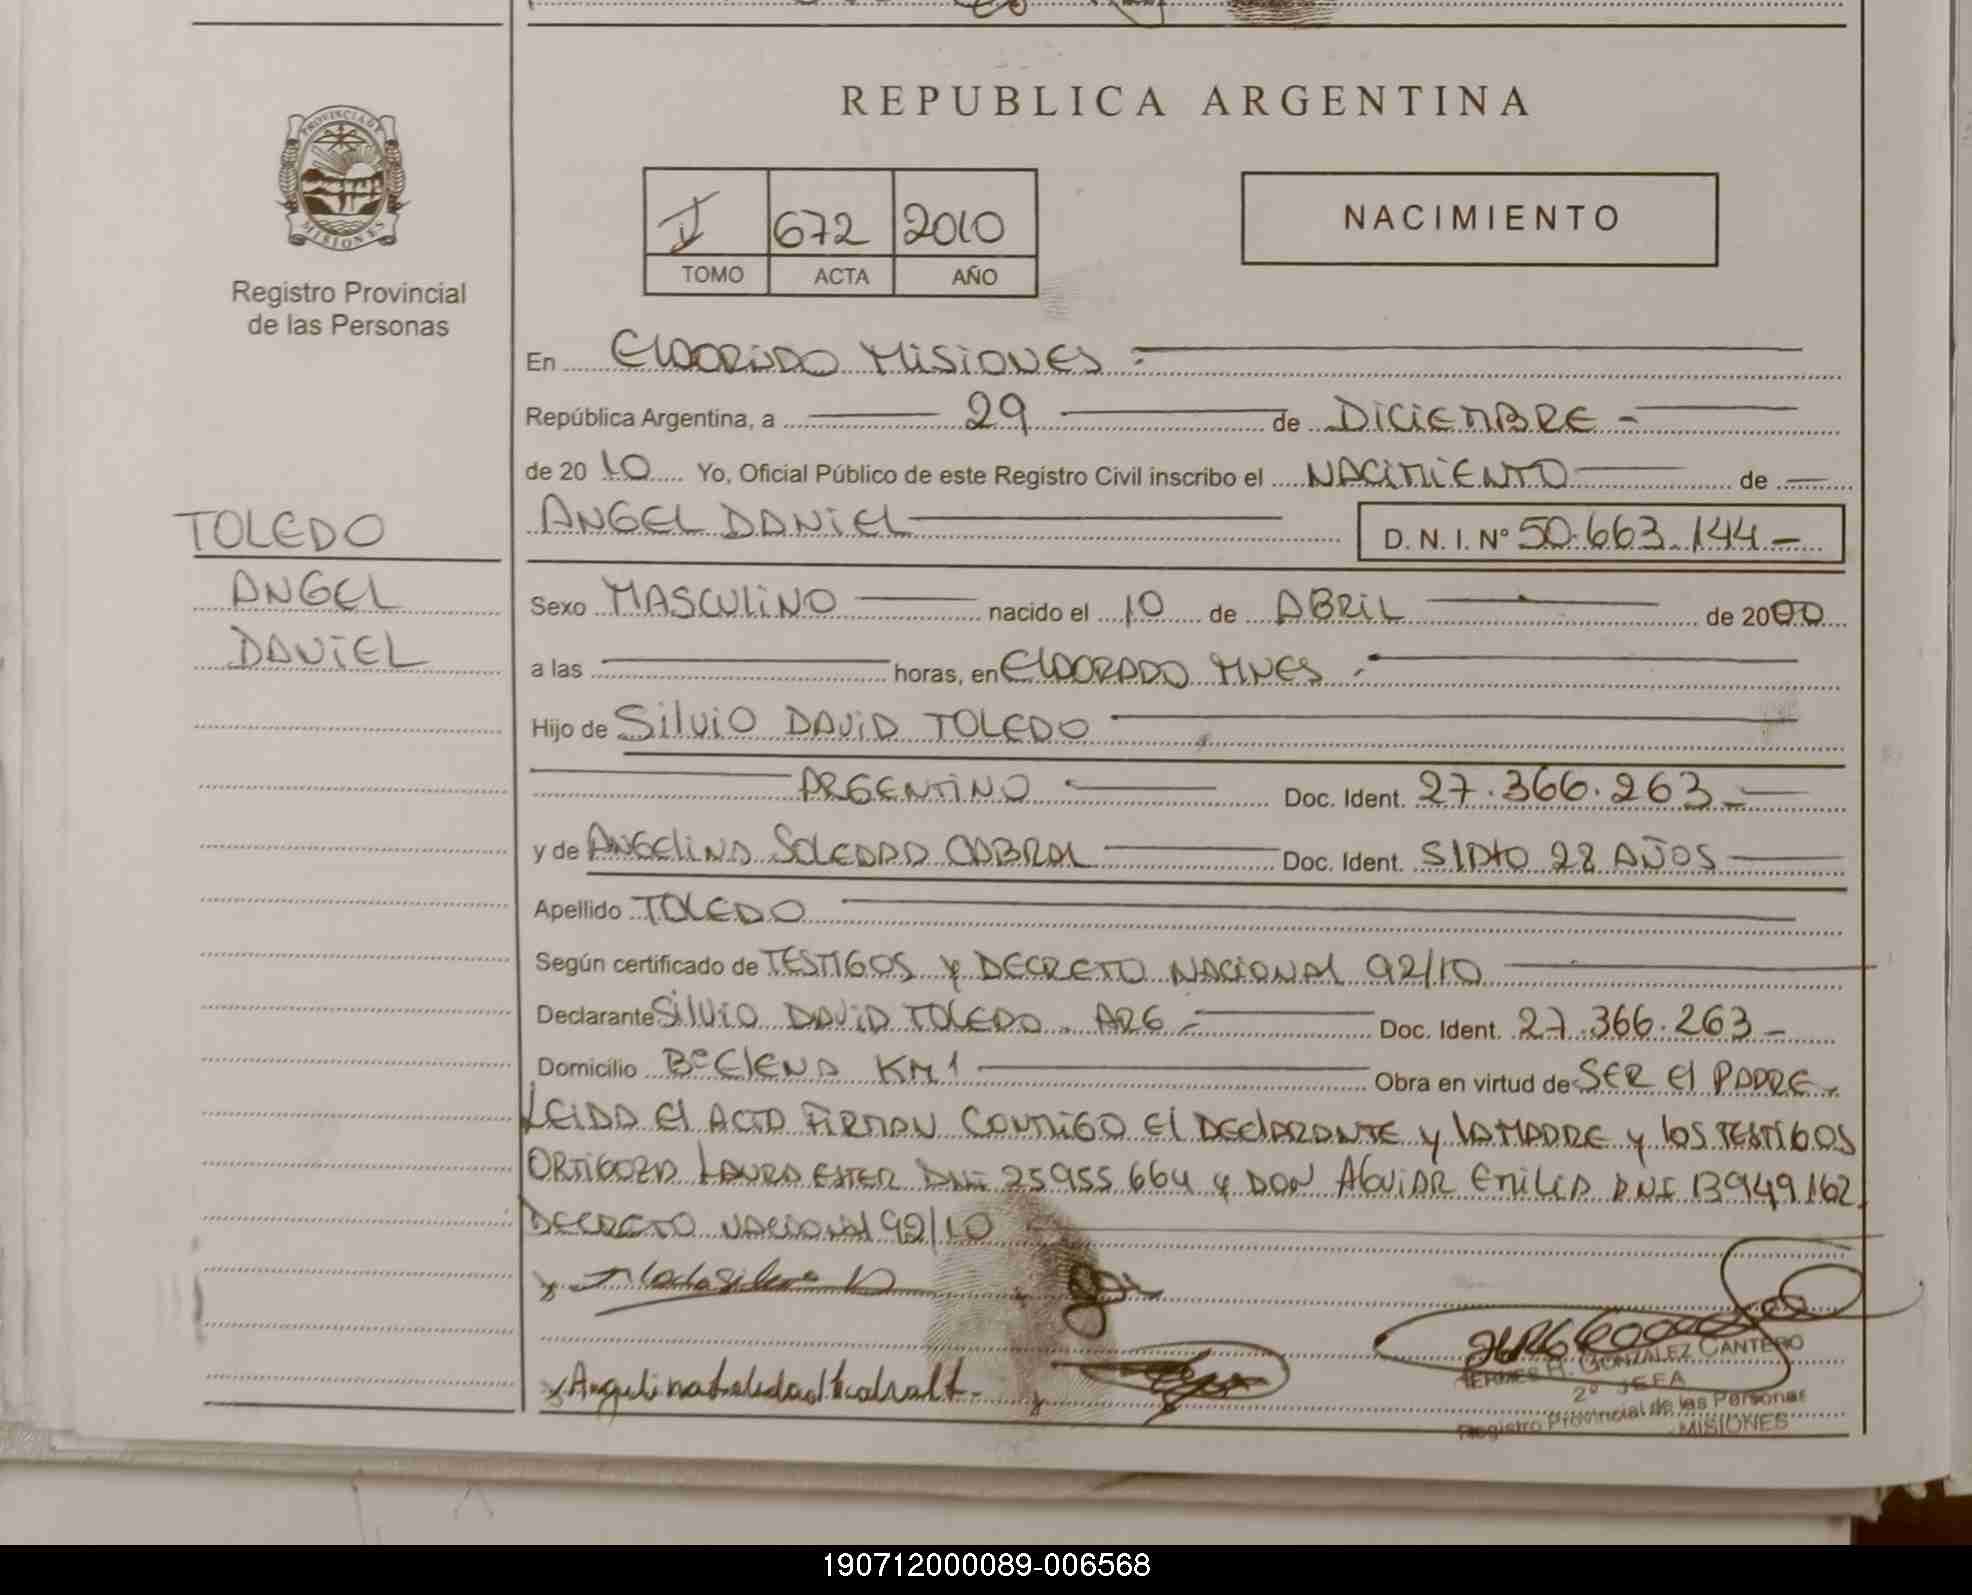 REPUBLICA ARGENTINA
PROVINCIA DE
MISIONES
Registro Provincial
de las Personas
672 2010
TOMO ACTA AÑO
NACIMIENTO
En ELDORADO MISIONES.
República Argentina, a 29 de DICIEMBRE -
de 2010 Yo, Oficial Público de este Registro Civil inscribo el NACIMIENTO de
ANGEL DANIEL
D. N. I. Nº 50.663.144 -
TOLEDO
ANGEL
DANIEL
Sexo MASCULINO nacido el 10 de ABRIL de 2000
a las horas, en ELDORADO MNES.
Hijo de Silvio DAVID TOLEDO
ARGENTINO Doc. Ident. 27.366.263 -
y de ANGELINA SOLEDAD CABRAL Doc. Ident. 28 AÑOS
Apellido TOLEDO
Según certificado de TESTIGOS y DECRETO NACIONAL 92/10
Declarante Silvio DAVID TOLEDO. ARG - Doc. Ident. 27.366.263 -
Domicilio Bº ELENA KM 1 Obra en virtud de SER El PADRE.
LEIDA El ACTA FIRMAN CONMIGO El DEClARANTE y lA MADRE y los TESTIGOS
ORTIGOZA LAURA ESTER DNI 25955.664 y DON AGUIAR EMILIA DNI 13949162
DECRETO NACIONAL 92/10
HERMES R. GONZALEZ CANTERO
2º JEFA
Registro Provincial de las Personas
MISIONES
190712000089-006568